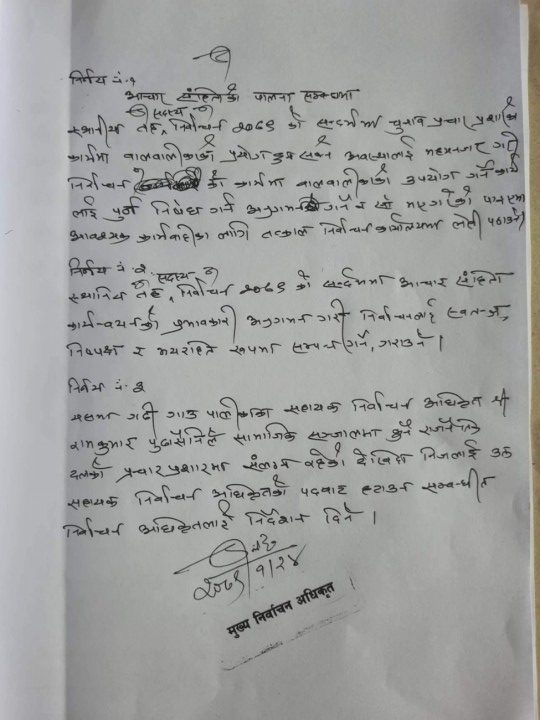 निर्णय नं. १
आचार संहिताको पालना सम्बन्धमा
सदस्य
स्थानीय तह, निर्वाचन २०७९ को सन्दर्भमा चुनाव प्रचार प्रशारका
कार्यमा बालबालीकाको प्रयोग हुन सक्ने अवस्थालाई मध्यनजर गरी
निर्वाचन को कार्यमा बालबालीकाको उपयोग गर्ने कार्य
लाई पुर्ण निषेध गर्न अनुगमन गर्ने र सो भए गरेको पाइएमा
आवश्यक कार्यवाहीका लागि तत्काल निर्वाचन कार्यालयमा लेखी पठाउने।
निर्णय नं. २ सदस्य
स्थानिय तह, निर्वाचन २०७९ को सन्दर्भमा आचार संहिता
कार्यन्वयनको प्रभावकारी अनुगमन गरी निर्वाचनलाई स्वतन्त्र,
निष्पक्ष र भयरहित रुपमा सम्पन्न गर्ने, गराउने।
निर्णय नं. ३
गढी गाउ पालीकाका सहायक निर्वाचन अधिकृत श्री
रामकुमार पुडासैनिले सामाजिक सञ्जालमा कुनै राजनैतिक
दलको प्रचार प्रशारमा संलग्न रहेको देखिदा निजलाई उक्त
सहायक निर्वाचन अधिकृतको पदबाट हटाउन सम्बन्धीत
निर्वाचन अधिकृतलाई निर्देशन दिने।
२०७९/१/२४
मुख्य निर्वाचन अधिकृत